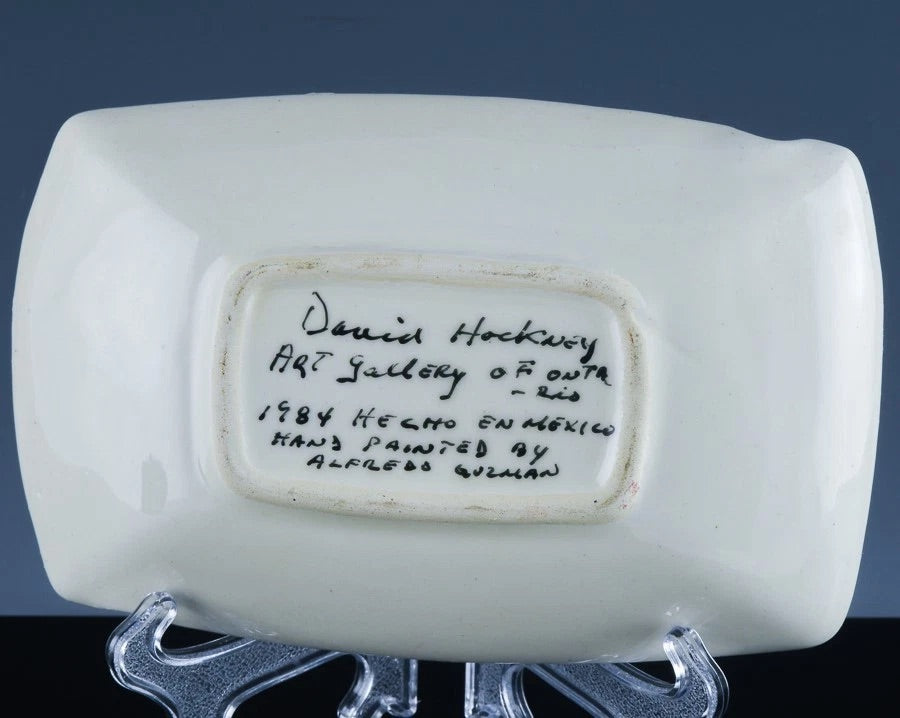 David Hockney
ART Gallery OF ONTA
- RIO
1984 HECHO EN MEXICO
HAND PAINTED BY
ALFREDO GUZMAN